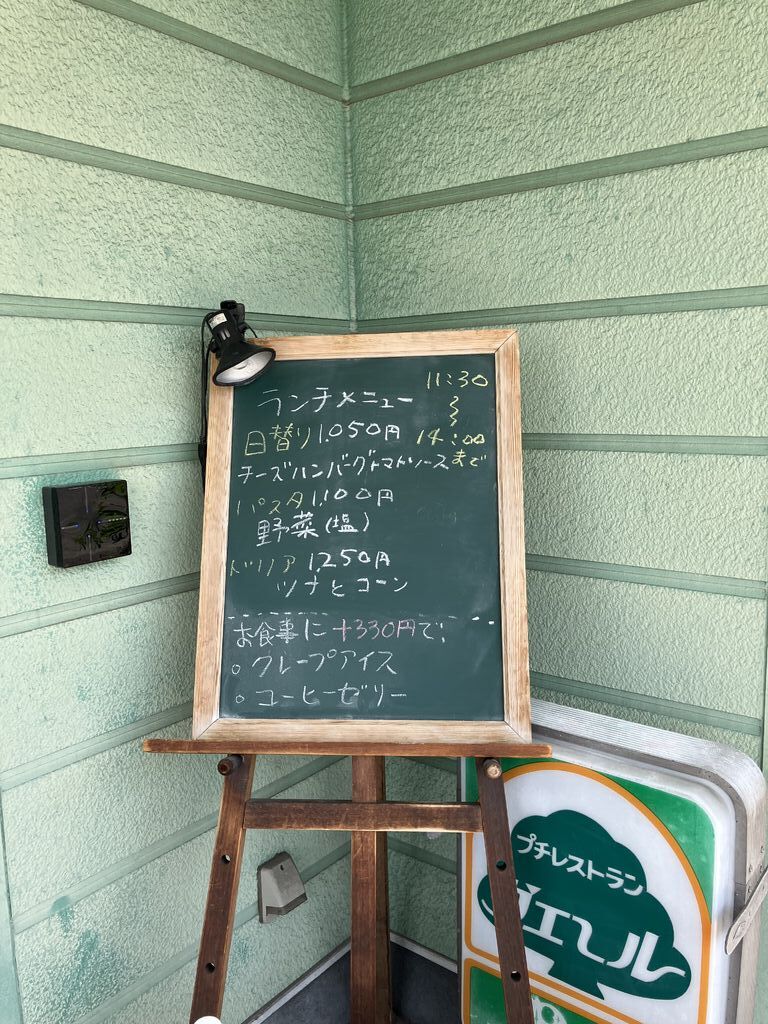 ランチメニュー
11:30
〜
14:00
まで
日替り 1,050円
チーズハンバーグトマトソース
パスタ 1,100円
野菜(塩)
ドリア 1,250円
ツナとコーン
お食事に +330円で!
○ クレープアイス
○ コーヒーゼリー
プチレストラン
ヴェール